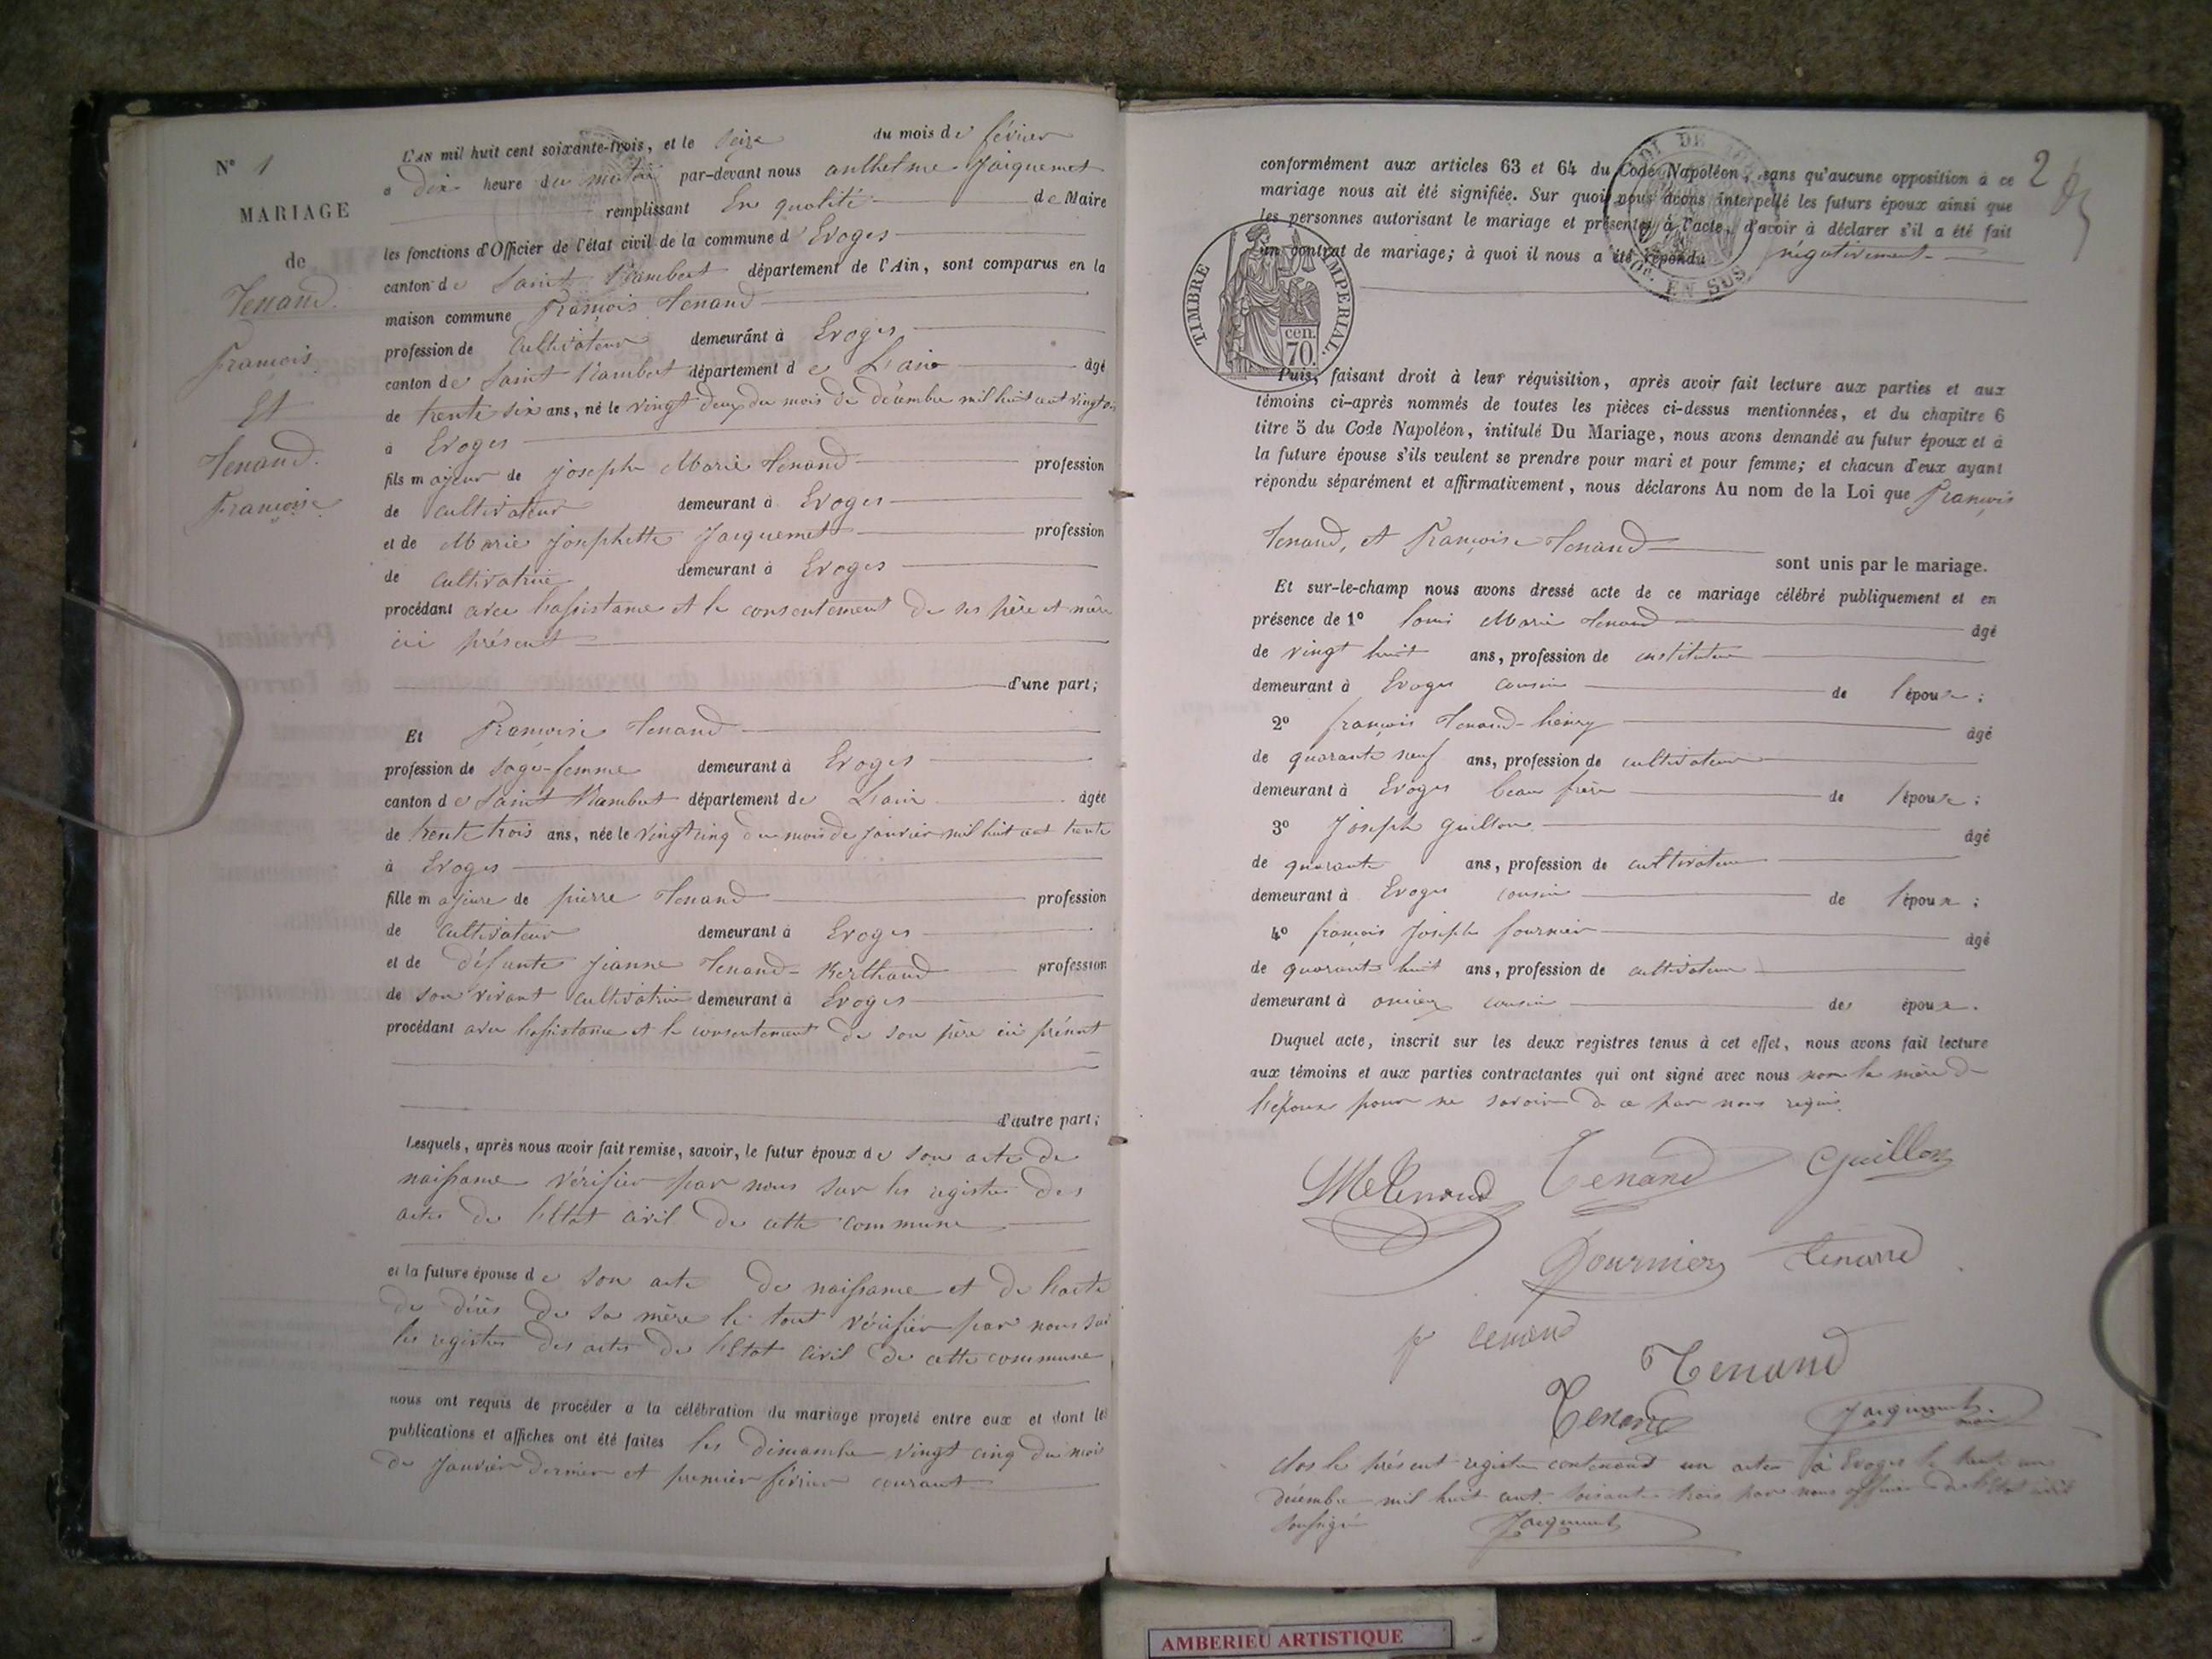 N° 1
MARIAGE
de
Tenand
François
Et
Tenand
Françoise
L'AN mil huit cent soixante-trois, et le seize du mois de février
a dix heure du matin par-devant nous anthelme Jacquemet
remplissant En qualité de Maire
les fonctions d'Officier de l'état civil de la commune d'Evoges
canton de Saint Rambert département de l'Ain, sont comparus en la
maison commune François Tenand
profession de Cultivateur demeurant à Evoges
canton de Saint Rambert département de L'ain âgé
de trente six ans, né le vingt deux du mois de décembre mil huit cent vingt
à Evoges
fils majeur de joseph Marie Tenand profession
de cultivateur demeurant à Evoges
et de Marie josephette Jacquemet profession
de cultivatrice demeurant à Evoges
procédant avec l'assistance et le consentement de ses père et mère
ici présent
d'une part;
Et Françoise Tenand
profession de sage-femme demeurant à Evoges
canton de Saint Rambert département de L'ain âgée
de trente trois ans, née le vingt cinq du mois de janvier mil huit cent trente
à Evoges
fille majeure de pierre Tenand profession
de cultivateur demeurant à Evoges
et de défunte jeanne Tenand-Berthaud profession
de son vivant cultivatrice demeurant à Evoges
procédant avec l'assistance et le consentement de son père ici présent
d'autre part;
Lesquels, après nous avoir fait remise, savoir, le futur époux de son acte de
naissance vérifier par nous sur les registres des
actes de l'Etat civil de cette commune
et la future épouse de son acte de naissance et de l'acte
de décès de sa mère le tout vérifier par nous sur
les registres des actes de l'Etat civil de cette commune
nous ont requis de procéder à la célébration du mariage projeté entre eux et dont les
publications et affiches ont été faites les dimanche vingt cinq du mois
de janvier dernier et premier février courant
2
conformément aux articles 63 et 64 du Code Napoléon, sans qu'aucune opposition à ce
mariage nous ait été signifiée. Sur quoi nous avons interpellé les futurs époux ainsi que
les personnes autorisant le mariage et présentes à l'acte, d'avoir à déclarer s'il a été fait
un contrat de mariage; à quoi il nous a été répondu négativement
TIMBRE IMPERIAL.
cen.
70.
EN SUS
Puis, faisant droit à leur réquisition, après avoir fait lecture aux parties et aux
témoins ci-après nommés de toutes les pièces ci-dessus mentionnées, et du chapitre 6
titre 5 du Code Napoléon, intitulé Du Mariage, nous avons demandé au futur époux et à
la future épouse s'ils veulent se prendre pour mari et pour femme; et chacun d'eux ayant
répondu séparément et affirmativement, nous déclarons Au nom de la Loi que François
Tenand, et Françoise Tenand
sont unis par le mariage.
Et sur-le-champ nous avons dressé acte de ce mariage célébré publiquement et en
présence de 1° louis Marie Tenand âgé
de vingt huit ans, profession de instituteur
demeurant à Evoges cousin de l'épouse;
2° françois Tenand-henry âgé
de quarante neuf ans, profession de cultivateur
demeurant à Evoges beau frère de l'épouse;
3° Joseph guillon âgé
de quarante ans, profession de cultivateur
demeurant à Evoges cousin de l'époux;
4° françois joseph fournier âgé
de quarante huit ans, profession de cultivateur
demeurant à cousin des époux.
Duquel acte, inscrit sur les deux registres tenus à cet effet, nous avons fait lecture
aux témoins et aux parties contractantes qui ont signé avec nous non la mère de
l'époux pour ne savoir de ce par nous requis.
LM Tenand Tenand Guillon
Fournier tenand
p tenand
Tenand
Tenand Jacquemet
maire
clos le présent registre contenant un acte à Evoges le trente un
décembre mil huit cent soixante trois par nous officier de l'Etat civil
soussigné Jacquemet
AMBERIEU ARTISTIQUE